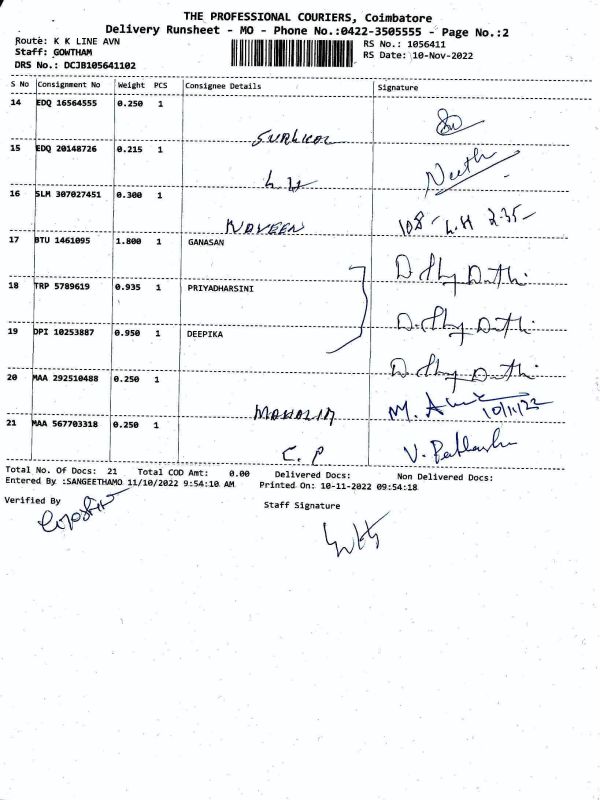 THE PROFESSIONAL COURIERS, Coimbatore
Delivery Runsheet - MO - Phone No.:0422-3505555 - Page No.:2
Route: K K LINE AVN
RS No.: 1056411
Staff: GOWTHAM
RS Date: 10-Nov-2022
DRS No.: DCJB105641102
S No Consignment No Weight PCS Consignee Details Signature
14 EDQ 16564555 0.250 1
15 EDQ 20148726 0.215 1
L H Neeth
16 SLM 307027451 0.300 1
NAVEEN 108 - L.H 2.35
17 BTU 1461095 1.800 1 GANASAN
18 TRP 5789619 0.935 1 PRIYADHARSINI
19 DPI 10253887 0.950 1 DEEPIKA
20 MAA 292510488 0.250 1
M. 10/11/22
21 MAA 567703318 0.250 1
C. P V.
Total No. Of Docs: 21 Total COD Amt: 0.00 Delivered Docs: Non Delivered Docs:
Entered By :SANGEETHAMO 11/10/2022 9:54:10 AM Printed On: 10-11-2022 09:54:18
Verified By
Staff Signature